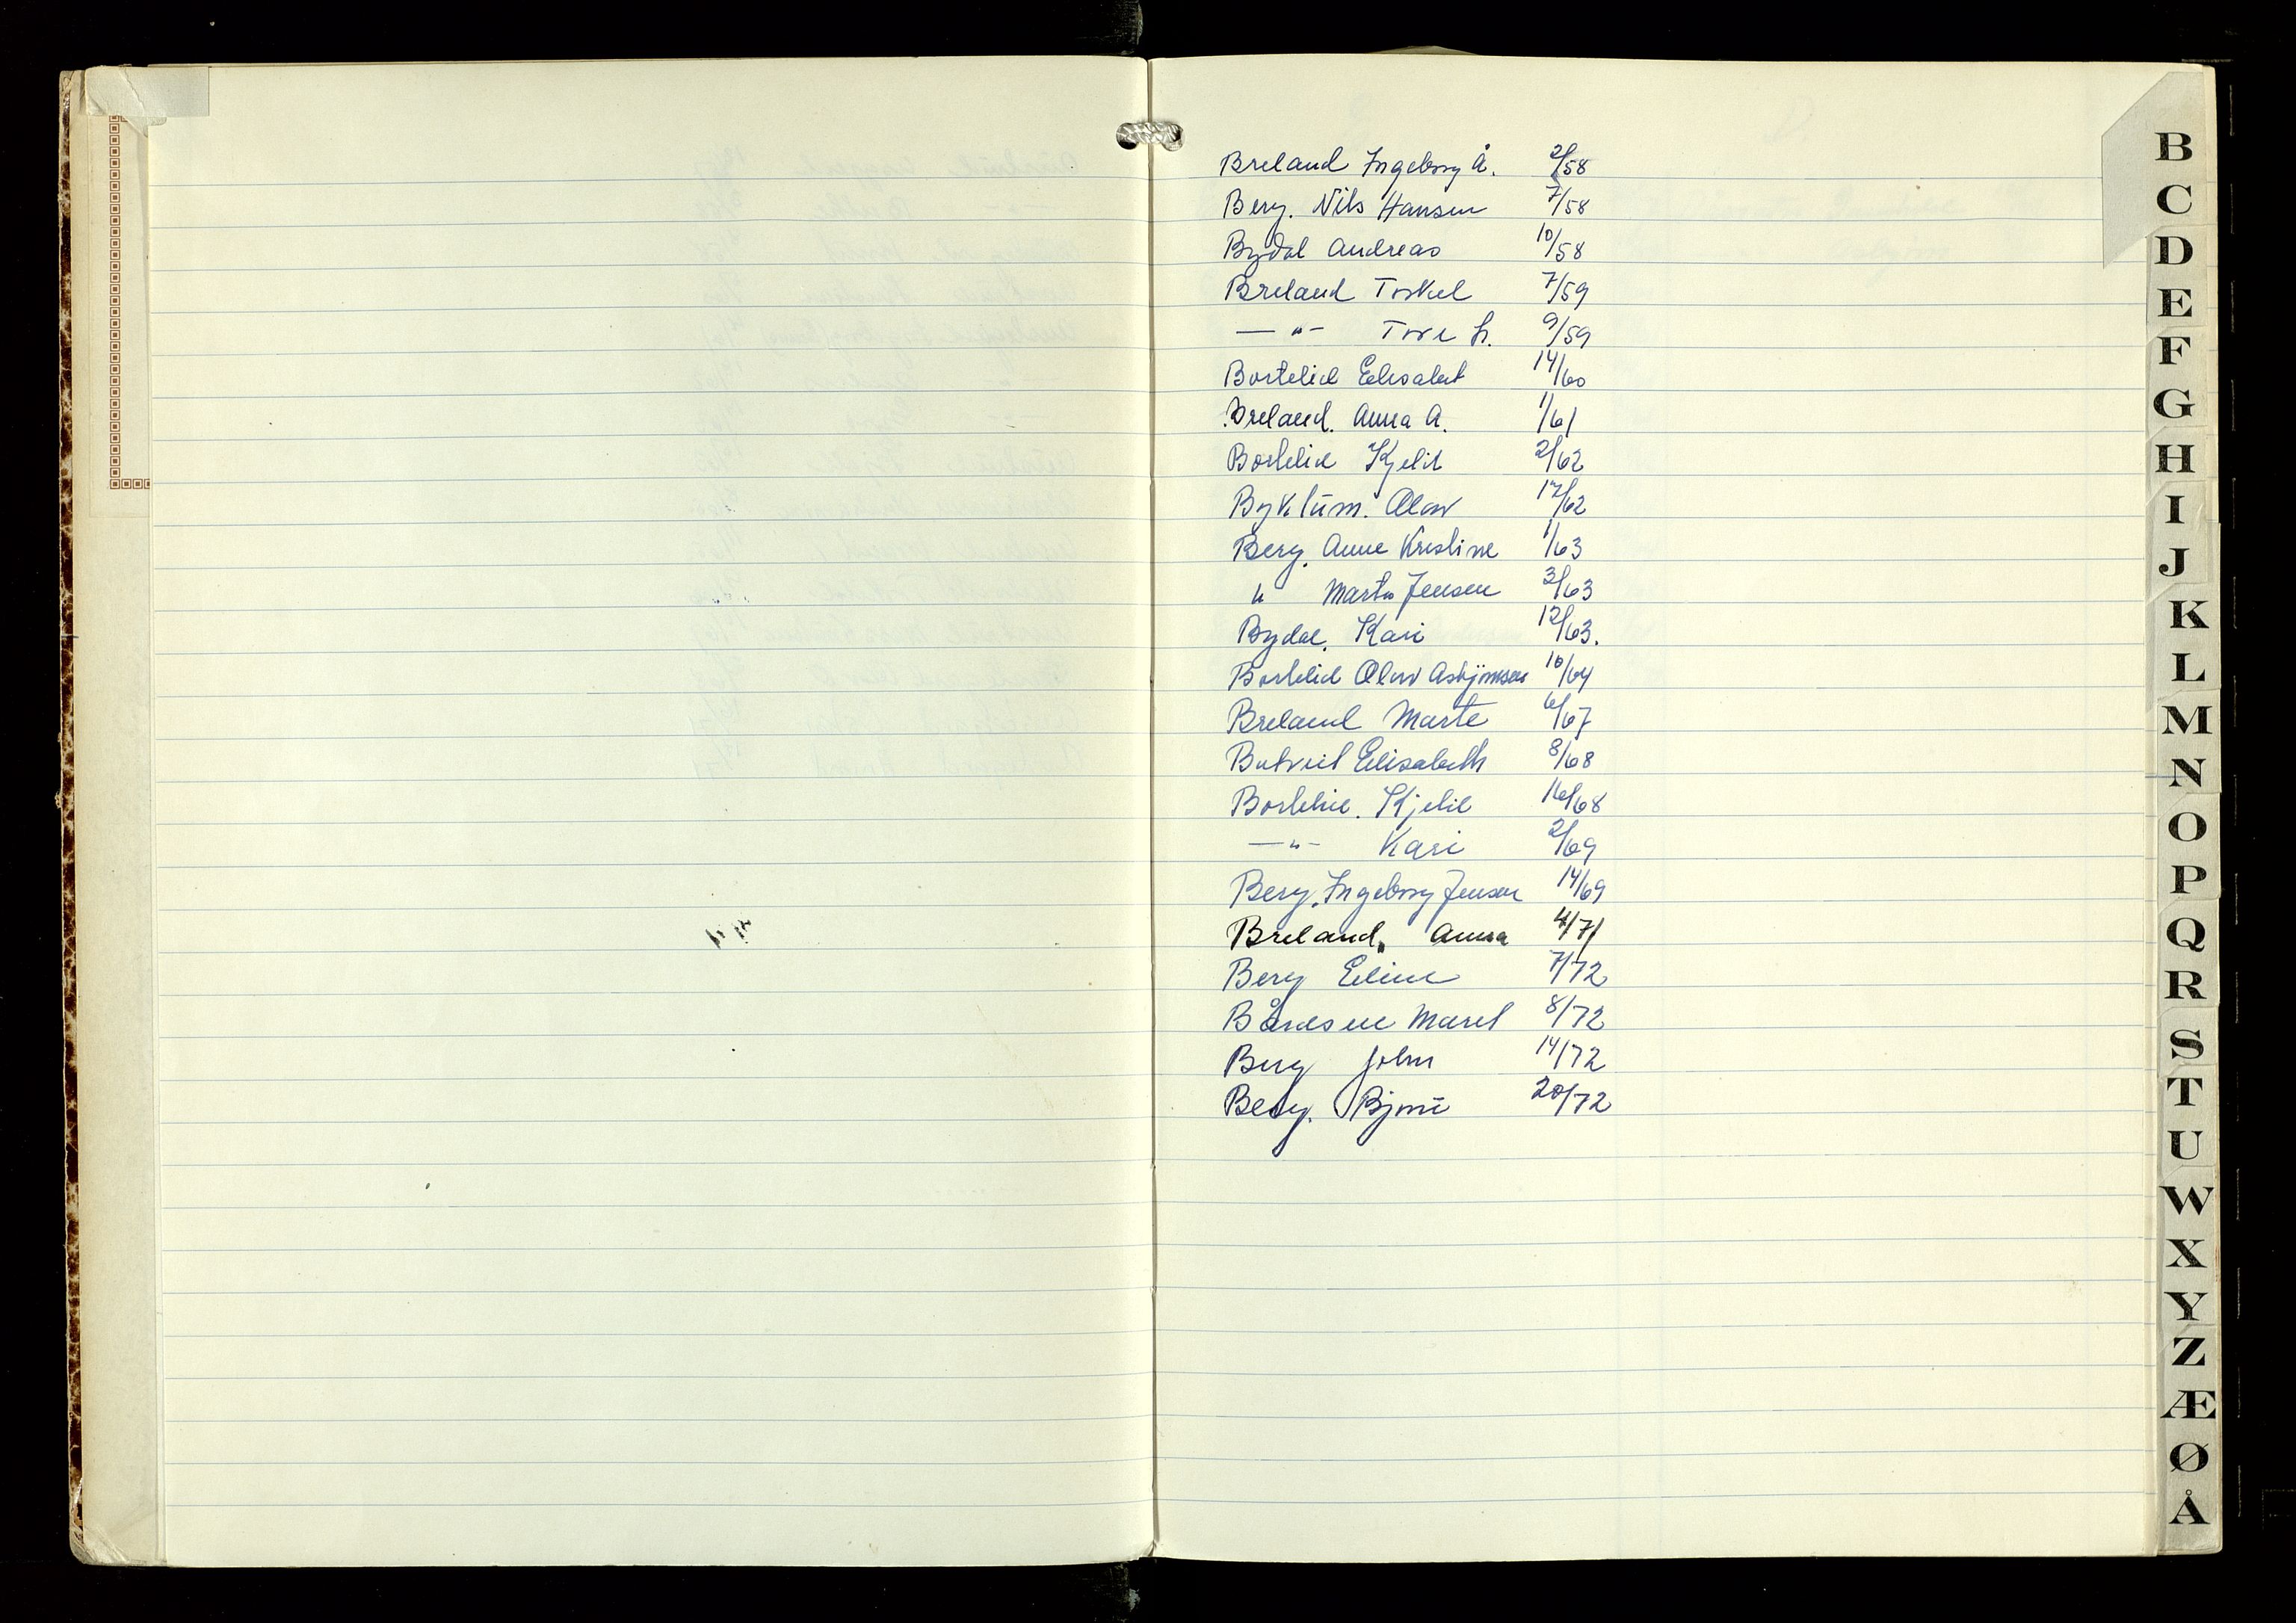 Breland Ingeborg Å. 2/58
Berg. Nils Hansen 7/58
Bydal Andreas 10/58
Breland Torkel 7/59
— " — Tore S. 9/59
Bortelid Elisabet 14/60
Breland. Anna A. 1/61
Bortelid Kjelit 2/62
Byklum. Olav 17/62
Berg. Anne Kristine 1/63
" Marta Jensen 3/63
Bydal. Kari 12/63.
Bortelid Olav Asbjørnsen 10/64
Breland Marte 6/67
Butveit Elisabeth 8/68
Bortelid. Kjelil 16/68
— " — Kari 2/69
Berg. Ingeborg Jensen 14/69
Breland, Anna 4/71
Berg Eline 7/72
Bårdsen Maret 8/72
Berg John 14/72
Berg. Bjørn 20/72
B
C
D
E
F
G
H
I
J
K
L
M
N
O
P
Q
R
S
T
U
W
X
Y
Z
Æ
Ø
Å